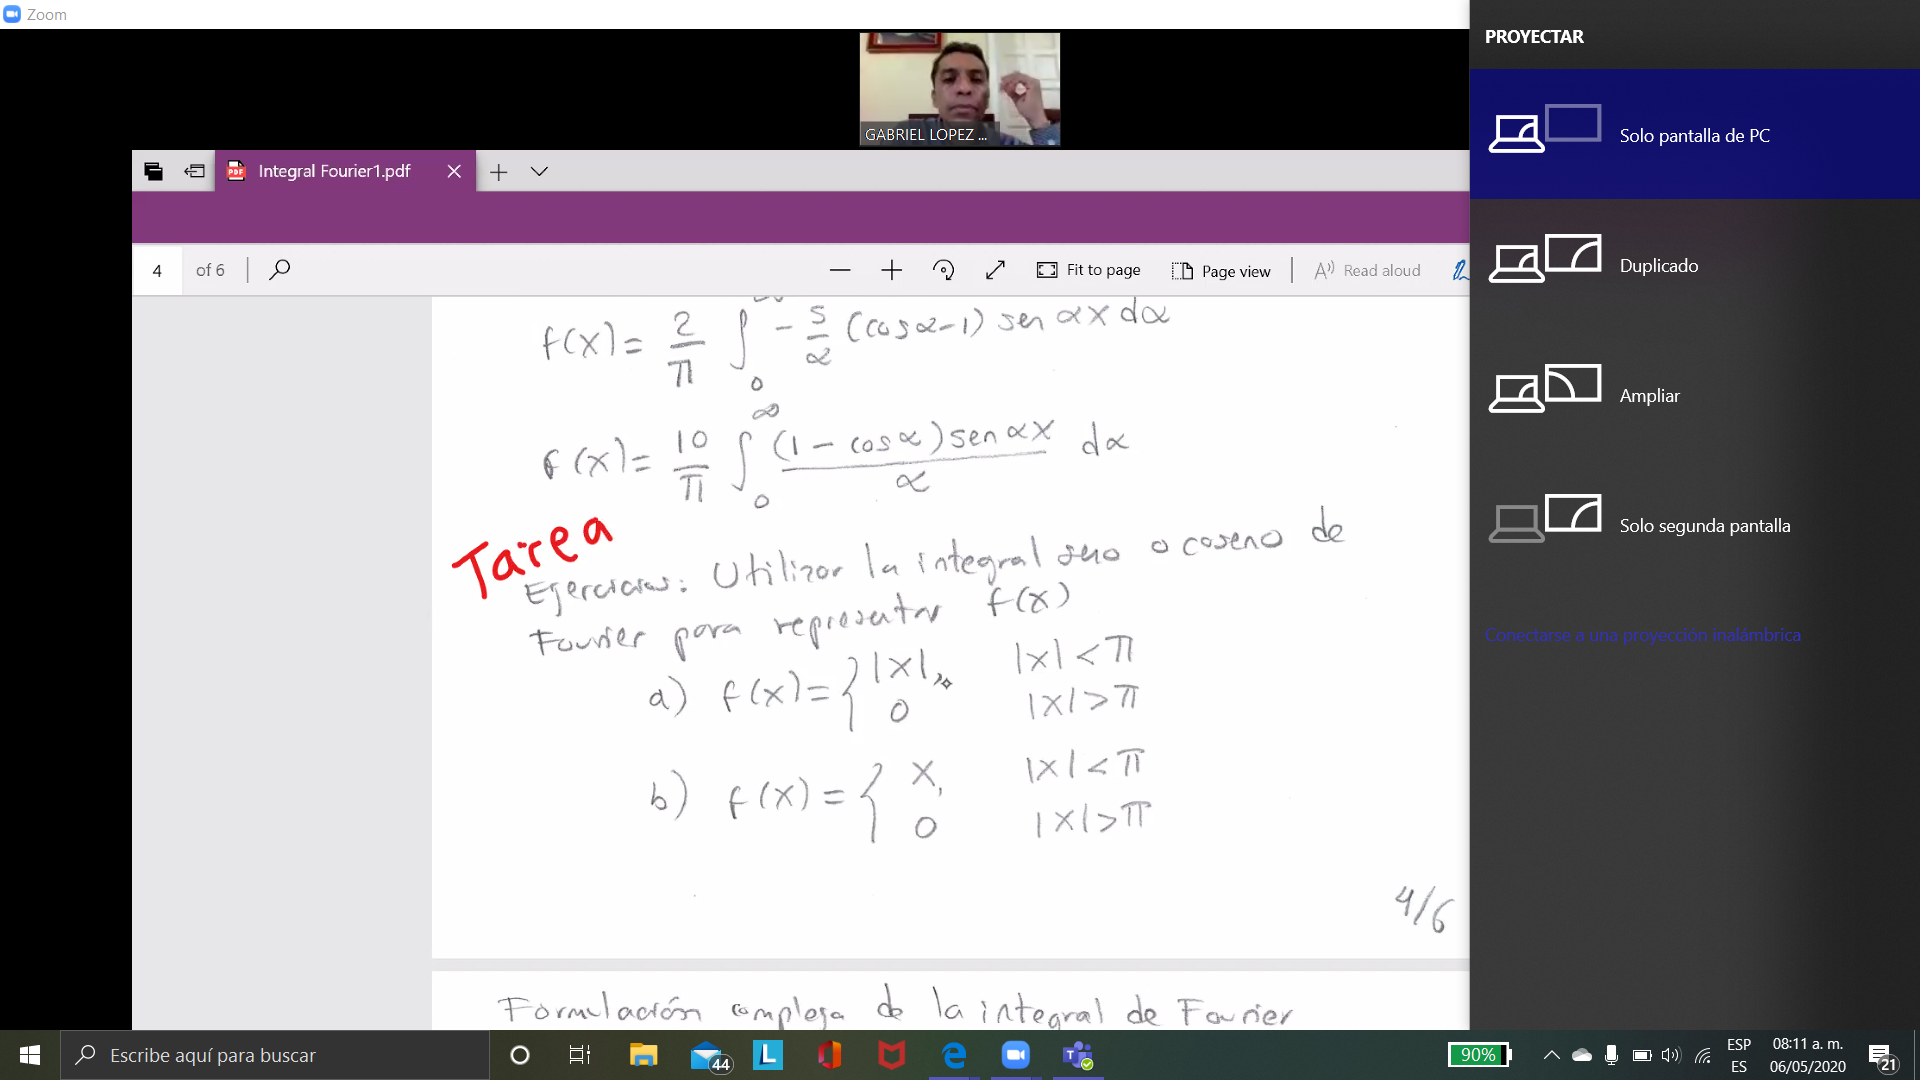 Zoom
GABRIEL LOPEZ ...
Integral Fourier1.pdf
4 of 6
Fit to page
Page view
Read aloud
f(x) = 2/π ∫ 0 - 5/α (cos α - 1) sen αx dα
f(x) = 10/π ∫ 0 ∞ (1 - cos α) sen αx / α dα
Tarea
Ejercicios: Utilizar la integral seno o coseno de
Fourier para representar f(x)
a) f(x) = { |x|, |x| < π
0 |x| > π
b) f(x) = { x, |x| < π
0 |x| > π
4/6
Formulación compleja de la integral de Fourier
PROYECTAR
Solo pantalla de PC
Duplicado
Ampliar
Solo segunda pantalla
Conectarse a una proyección inalámbrica
Escribe aquí para buscar
44
90%
ESP
ES
08:11 a. m.
06/05/2020
21